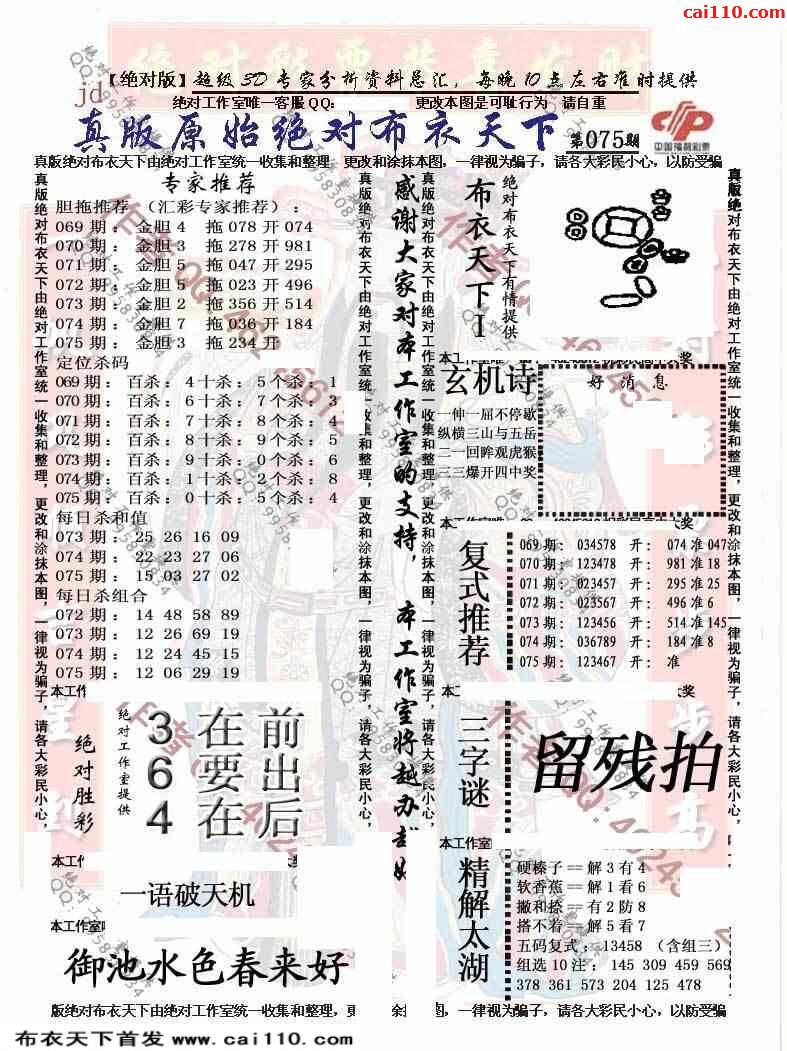 cai110.com
【绝对版】超级3D专家分析资料总汇，每晚10点左右准时提供
jd
绝对工作室唯一客服QQ: 更改本图是可耻行为 请自重
真版原始绝对布衣天下 第075期
中国福利彩票
真版绝对布衣天下由绝对工作室统一收集和整理 更改和涂抹本图，一律视为骗子，请各大彩民小心，以防受骗
真版绝对布衣天下由绝对工作室统一收集和整理，更改和涂抹本图，一律视为骗子，请各大彩民小心，
专家推荐
胆拖推荐 （汇彩专家推荐）：
069期： 金胆4 拖078开074
070期： 金胆3 拖278开981
071期： 金胆5 拖047开295
072期： 金胆5 拖023开496
073期： 金胆2 拖356开514
074期： 金胆7 拖036开184
075期： 金胆3 拖234开
定位杀码
069期： 百杀：4十杀：5个杀：1
070期： 百杀：6十杀：7个杀：3
071期： 百杀：7十杀：8个杀：4
072期： 百杀：8十杀：9个杀：5
073期： 百杀：9十杀：0个杀：6
074期： 百杀：1十杀：2个杀：8
075期： 百杀：0十杀：5个杀：4
每日杀和值
073期： 25 26 16 09
074期： 22 23 27 06
075期： 15 03 27 02
每日杀组合
072期： 14 48 58 89
073期： 12 26 69 19
074期： 12 24 45 15
075期： 12 06 29 19
本工作
绝对胜彩
绝对工作室提供
364
在要在
前出后
本工作
一语破天机
本工作室
御池水色春来好
感谢大家对本工作室的支持，本工作室将越办越好
布衣天下I
绝对布衣天下有情提供
玄机诗
一伸一屈不停歇
纵横三山与五岳
二一回眸观虎猴
三三爆开四中奖
好消息
复式推荐
069期： 034578 开： 074准047
070期： 123478 开： 981准18
071期： 023457 开： 295准25
072期： 023567 开： 496准6
073期： 123456 开： 514准145
074期： 036789 开： 184准8
075期： 123467 开： 准
三字谜
留残拍
本工作室
精解太湖
硬榛子==解3有4
软香蕉==解1看6
撇和捺==有2防8
搭不着==解5看7
五码复式：13458 （含组三）
组选10注： 145 309 459 569
378 361 573 204 125 478
版绝对布衣天下由绝对工作室统一收集和整理，更 涂 图，一律视为骗子，请各大彩民小心，以防受骗
布衣天下首发 www.cai110.com